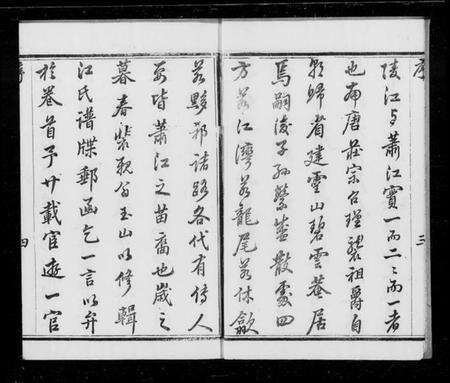 序
陵江与蕭江實一而二二而一者
也南唐莊宗台瑾襲祖爵自
歸省建雲山碧雲菴居
焉嗣後子孫繁盛散處四
方若江灣若龍尾若休歙
若黟祁諸路各代有傳人
要皆蕭江之苗裔也歲之
暮春裴親翁玉山以修輯
江氏譜牒郵函乞一言以弁
於卷首予廿載宦遊一官
三
四